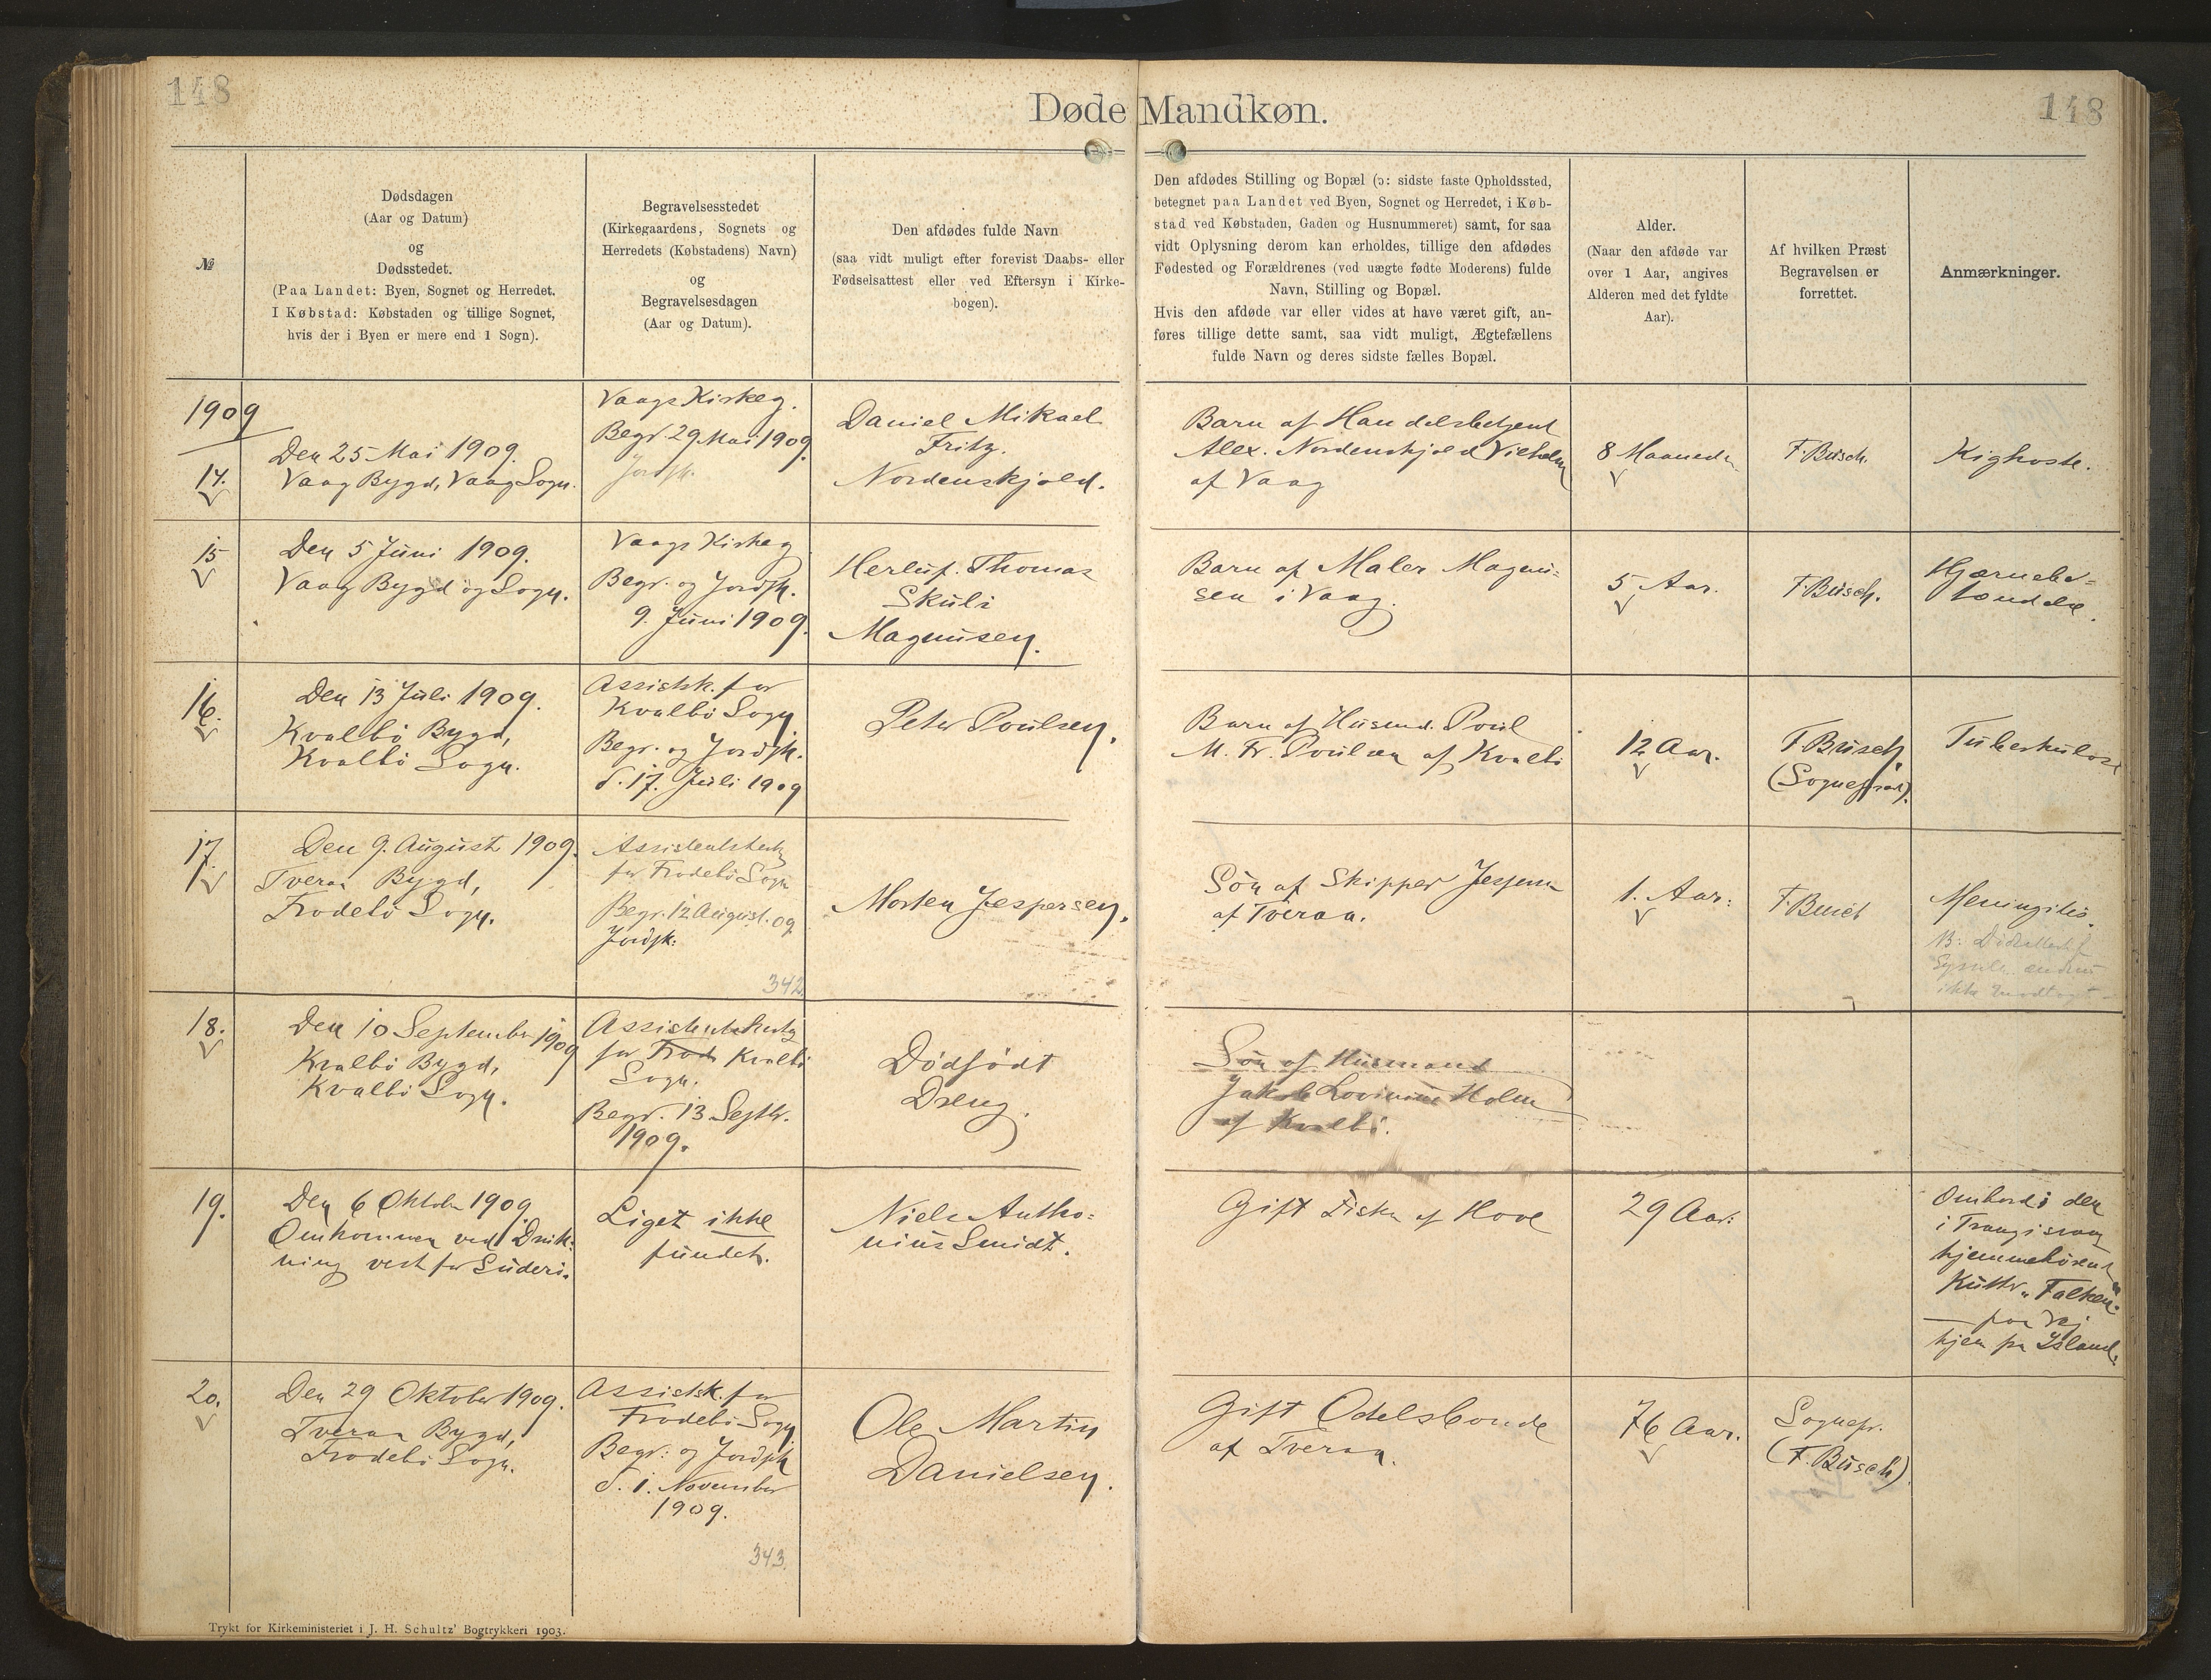 148
Døde Mandkøn.
148
№
Dødsdagen
(Aar og Datum)
og
Dødsstedet.
(Paa Landet: Byen, Sognet og Herredet.
I Købstad: Købstaden og tillige Sognet,
hvis der i Byen er mere end 1 Sogn).
Begravelsesstedet
(Kirkegaardens, Sognets og
Herredets (Købstadens) Navn)
og
Begravelsesdagen
(Aar og Datum).
Den afdødes fulde Navn
(saa vidt muligt efter forevist Daabs- eller
Fødselsattest eller ved Eftersyn i Kirke-
bogen).
Den afdødes Stilling og Bopæl (ɔ: sidste faste Opholdssted,
betegnet paa Landet ved Byen, Sognet og Herredet, i Køb-
stad ved Købstaden, Gaden og Husnummeret) samt, for saa
vidt Oplysning derom kan erholdes, tillige den afdødes
Fødested og Forældrenes (ved uægte fødte Moderens) fulde
Navn, Stilling og Bopæl.
Hvis den afdøde var eller vides at have været gift, an-
føres tillige dette samt, saa vidt muligt, Ægtefællens
fulde Navn og deres sidste fælles Bopæl.
Alder.
(Naar den afdøde var
over 1 Aar, angives
Alderen med det fyldte
Aar).
Af hvilken Præst
Begravelsen er
forrettet.
Anmærkninger.
1909
14.
Den 25 Mai 1909.
Vaag Bygd, Vaag Sogn.
Vaags Kirkeg.
Begr. 29 Mai 1909.
Jordfk.
Daniel Mikael
Fritz.
Nordenskjold.
Barn af Handelsbetjent
Alex. Nordenskjold Vilhelm
af Vaag
8 Maaneder
F. Busch.
Kighoste.
15
Den 5 Juni 1909.
Vaag Bygd og Sogn.
Vaags Kirkeg
Begr. og Jordfk.
9. Juni 1909.
Herluf. Thomas
Skuli
Magnusen.
Barn af Maler Magnu=
sen i Vaag.
5 Aar.
F. Busch.
Hjærnebe=
tændelse.
16.
Den 13 Juli 1909.
Kvalbö Bygd,
Kvalbö Sogn.
Assistk. for
Kvalbö Sogn
Begr. og Jordfk.
d. 17. Juli 1909
Peter Poulsen.
Barn af Husmd. Poul
M. Fr. Poulsen af Kvalbö
12 Aar.
F. Busch.
(Sognepræst).
Tuberkulose
17.
Den 9. August 1909.
Tveraa Bygd,
Frodebö Sogn.
Assistentskirkeg
for Frodebö Sogn
Begr. 12 August. 09
Jordfk:
342
Morten Jespersen.
Sön af Skipper Jespersen
af Tveraa.
1. Aar:
F. Busch
Meningitis.
ikke modtaget
18.
Den 10 September 1909
Kvalbö Bygd,
Kvalbö Sogn.
Assistentskirkeg
for Frod Kvalbö
Sogn.
Begr. 13 Septbr.
1909.
Dödfödt
Dreng.
Sön af Husmand
Jakob Holm
af Kvalbö.
19.
Den 6 Oktober 1909
Omkommen ved Druk=
ning vest for Suderö.
Liget ikke
fundet.
Niels Antho=
nius Smidt.
Gift Fisker af Hove
29 Aar:
Ombord i den
i Trangisvaag
hjemmehörende
Kutter „Falken“
— paa Vej
hjem fra Island.
20.
Den 29 Oktober 1909.
Tveraa Bygd,
Frodebö Sogn.
Assistk. for
Frodebö Sogn
Begr. og Jordfk
d. 1. November
1909.
343.
Ole Martin
Danielsen.
Gift Odelsbonde
af Tveraa.
76 Aar.
Sognepr.
(F. Busch)
Trykt for Kirkeministeriet i J. H. Schultz' Bogtrykkeri 1903.